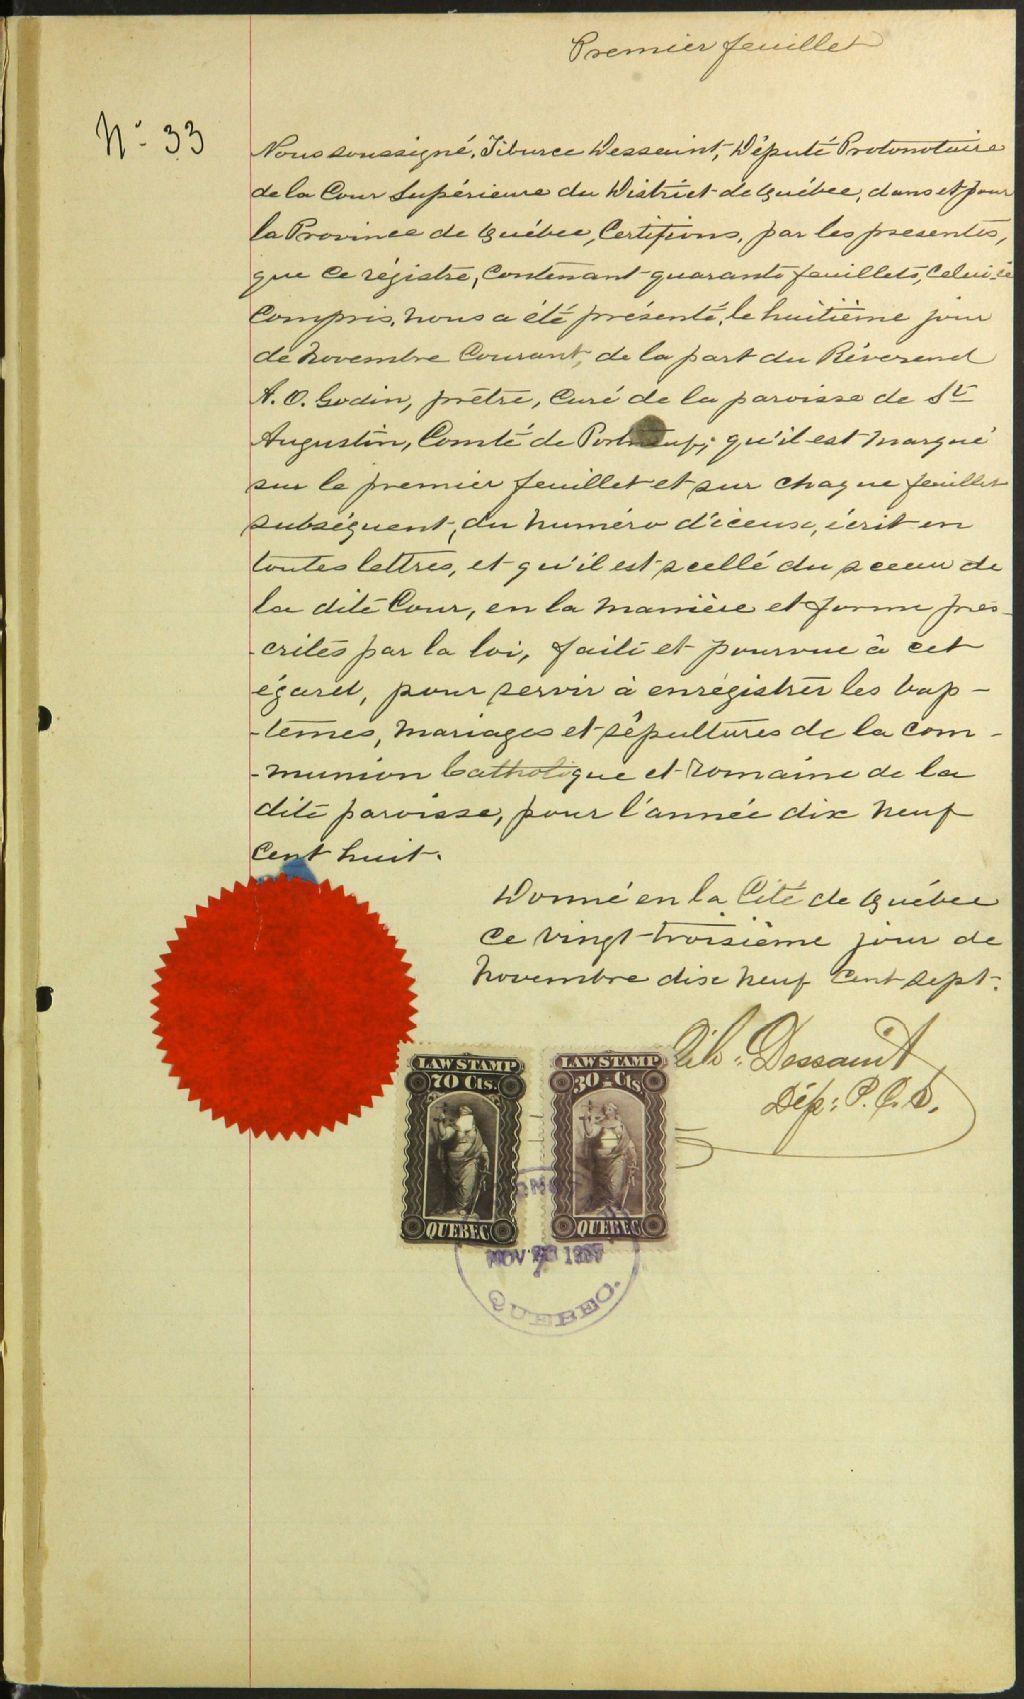 Premier feuillet
No. 33
Nous soussigné, Tiburce Dessaint, Député Protonotaire
de la Cour Supérieure du District de Québec, dans et pour
la Province de Québec, Certifions, par les présentes,
que ce régistre, contenant quarante feuillets, celui-ci
compris, nous a été présenté, le huitième jour
de Novembre Courant, de la part du Révérend
A. O. Godin, prêtre, curé de la paroisse de St
Augustin, Comté de Portneuf; qu'il est marqué
sur le premier feuillet et sur chaque feuillet
subséquent, du numéro d'iceux, écrit en
toutes lettres, et qu'il est scellé du sceau de
la dite Cour, en la manière et forme pres-
-crites par la loi, faite et pourvue à cet
égard, pour servir à enrégistrer les bap-
-têmes, mariages et sépultures de la com-
-munion Catholique et romaine de la
dite paroisse, pour l'année dix neuf
cent huit.
Donné en la Cité de Québec
ce vingt-troisième jour de
Novembre dix neuf cent sept.
Tib: Dessaint
Dép: P. C. S.
LAW STAMP
70 Cts.
QUEBEC
LAW STAMP
30 Cts
QUEBEC
NOV 23 1907
QUEBEC.